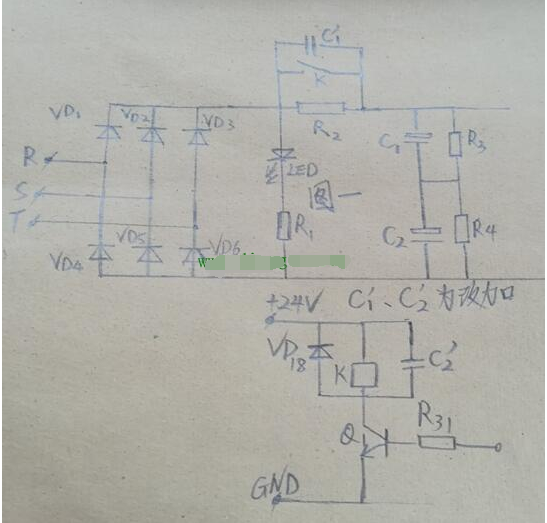 C₁'
K
VD₁
VD2
VD3
R₂
R
C₁
R₃
S
LED
图一
T
R₁
C₂
R4
VD4
VD5
VD6
+24V
C₁'、C₂'为改加口
VD₁₈
K
C₂'
R₃₁
Q
GND